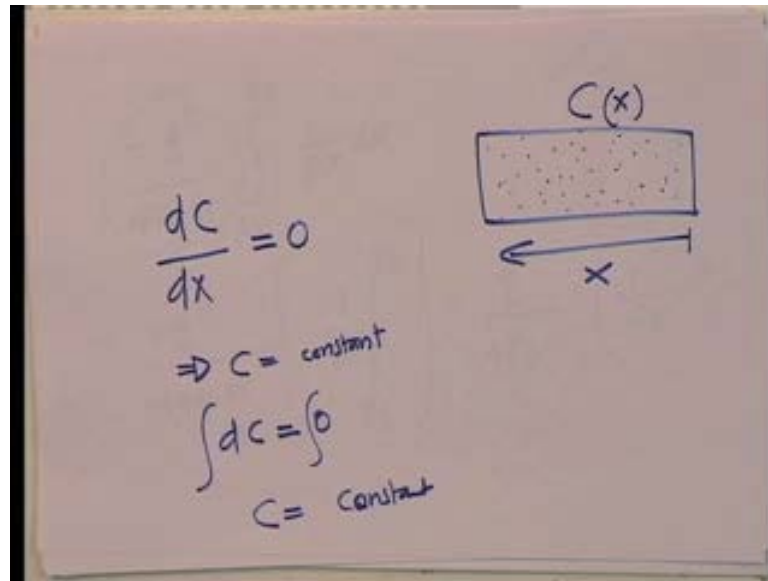 C(x)
x
dC/dx = 0
⇒ C = constant
∫dC = ∫0
C = constant